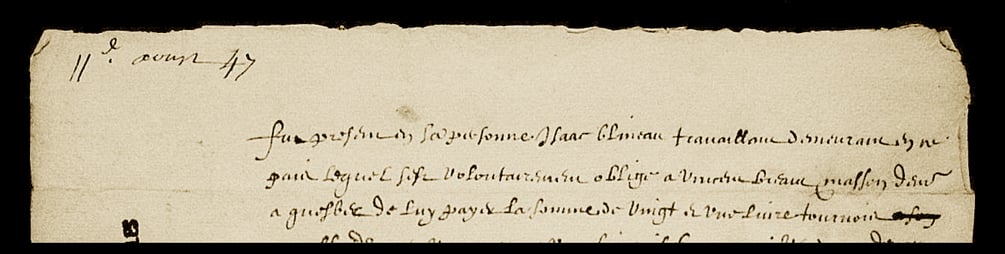 11e aoust 47
Fut present en sa personne Isaac blineau travaillant demeurant en ce
pais lequel sest volontairement oblige a vincent briault masson demt
a quebec de luy payer la somme de vingt et une livre tournois